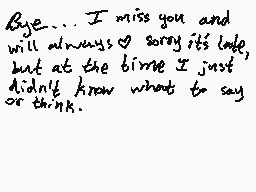 Bye... I miss you and
will always ♡ sorry it's late,
but at the time I just
didn't know what to say
or think.